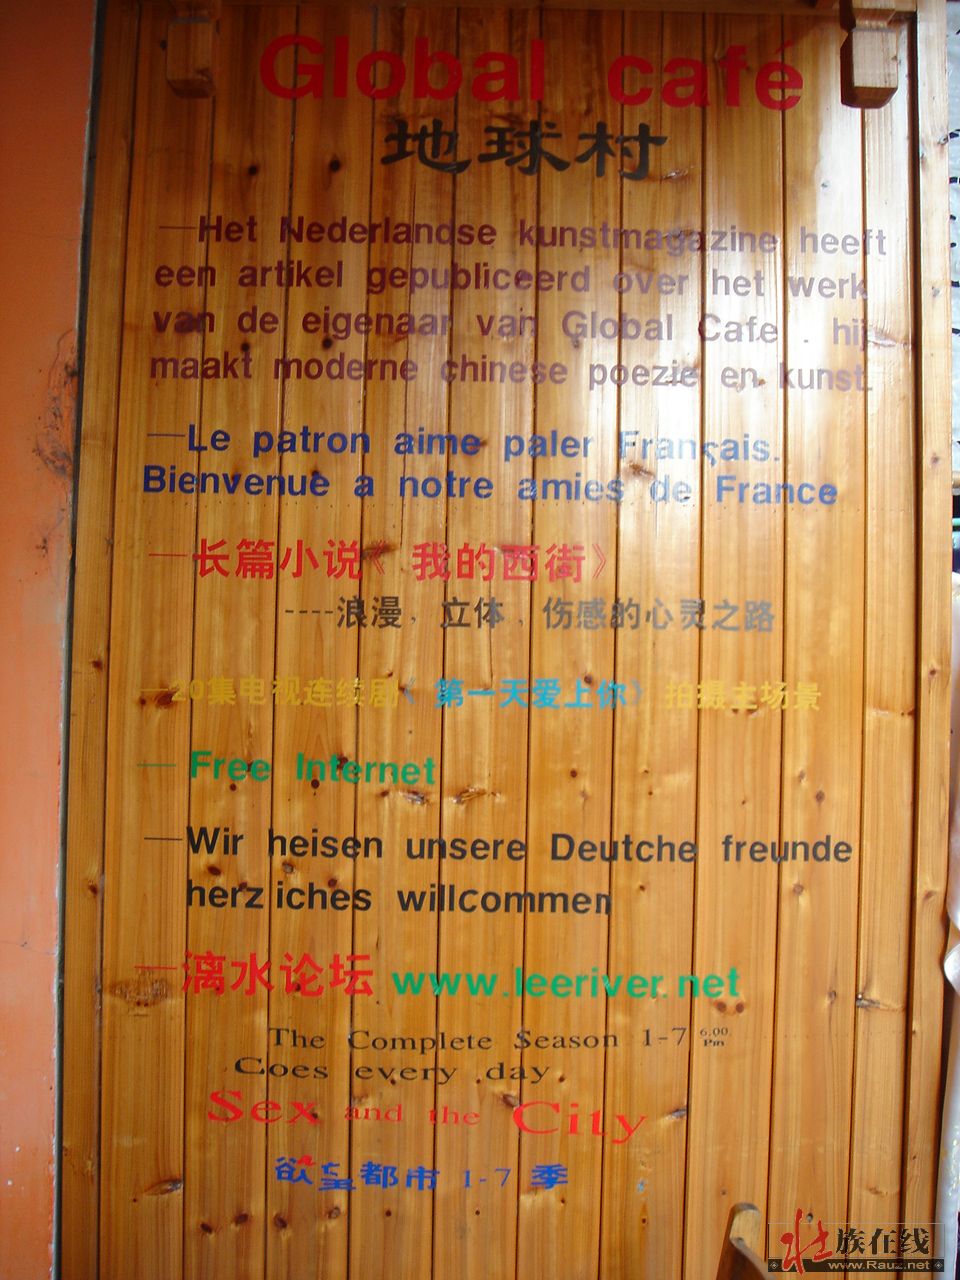 Global café
地球村
—Het Nederlandse kunstmagazine heeft
een artikel gepubliceerd over het werk
van de eigenaar van Global Cafe . hij
maakt moderne chinese poezie en kunst.
—Le patron aime paler Français.
Bienvenue a notre amies de France
—长篇小说《我的西街》
----浪漫，立体，伤感的心灵之路
—20集电视连续剧《第一天爱上你》拍摄主场景
— Free Internet
—Wir heisen unsere Deutche freunde
herz iches willcommen
—漓水论坛 www.leeriver.net
The Complete Season 1-7 6.00 Pm
Goes every day.
Sex and the City
欲望都市 1-7 季
壮族在线
www.Rauz.net